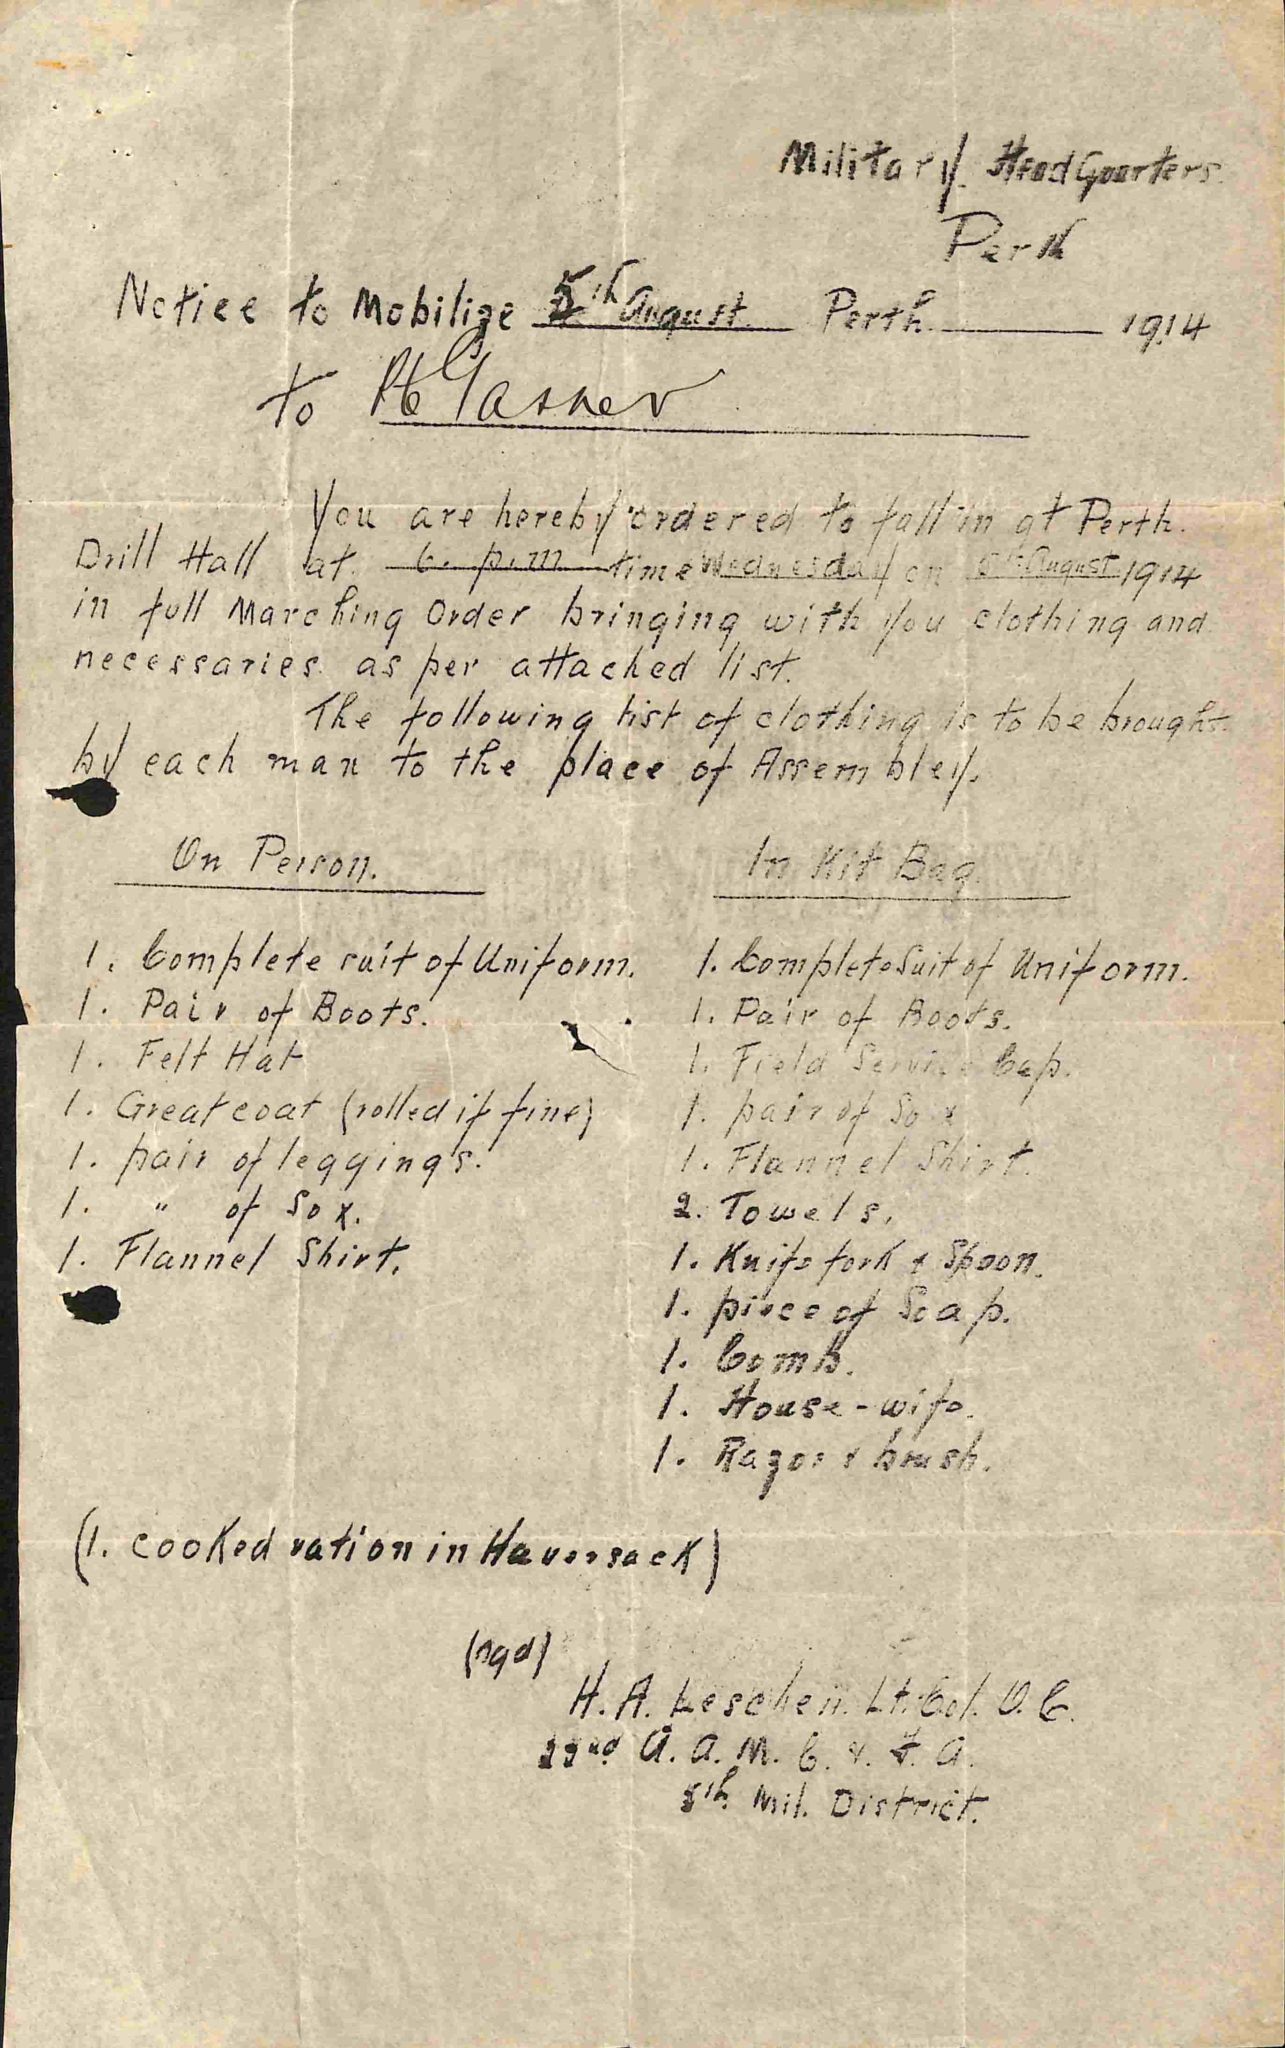 Military. Head Quarters.
Perth
Notice to Mobilize 5th August. Perth. 1914
to Pte Gasner
You are hereby ordered to fall in at Perth.
Drill Hall at 6. p.m time Wednesday on August 1914
in full Marching Order bringing with you clothing and
necessaries as per attached list.
The following list of clothing is to be brought
by each man to the place of Assembley.
On Person.
1. Complete suit of Uniform.
1. Pair of Boots.
1. Felt Hat
1. Great coat (rolled if fine)
1. pair of leggings.
1. " of Sox.
1. Flannel Shirt.
In Kit Bag.
1. Complete Suit of Uniform.
1. Pair of Boots.
1. Field Service Cap.
1. pair of Sox
1. Flannel Shirt.
2. Towels.
1. Knife fork & Spoon.
1. piece of Soap.
1. Comb.
1. House-wife.
1. Razor & brush.
(1. cooked ration in Haversack)
(sgd)
H. A. Leschen. Lt. Col. O. C.
A. A. M. C. & F. A.
5th Mil. District.